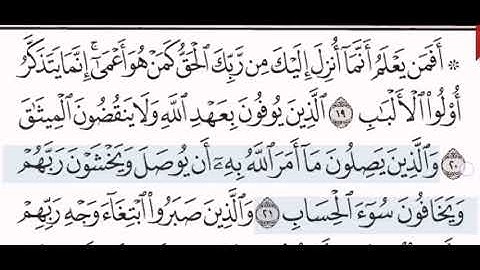 ۞ أَفَمَن يَعْلَمُ أَنَّمَآ أُنزِلَ إِلَيْكَ مِن رَّبِّكَ ٱلْحَقُّ كَمَنْ هُوَ أَعْمَىٰٓ ۚ إِنَّمَا يَتَذَكَّرُ
أُو۟لُوا۟ ٱلْأَلْبَـٰبِ ١٩ ٱلَّذِينَ يُوفُونَ بِعَهْدِ ٱللَّهِ وَلَا يَنقُضُونَ ٱلْمِيثَـٰقَ
٢٠ وَٱلَّذِينَ يَصِلُونَ مَآ أَمَرَ ٱللَّهُ بِهِۦٓ أَن يُوصَلَ وَيَخْشَوْنَ رَبَّهُمْ
وَيَخَافُونَ سُوٓءَ ٱلْحِسَابِ ٢١ وَٱلَّذِينَ صَبَرُوا۟ ٱبْتِغَآءَ وَجْهِ رَبِّهِمْ